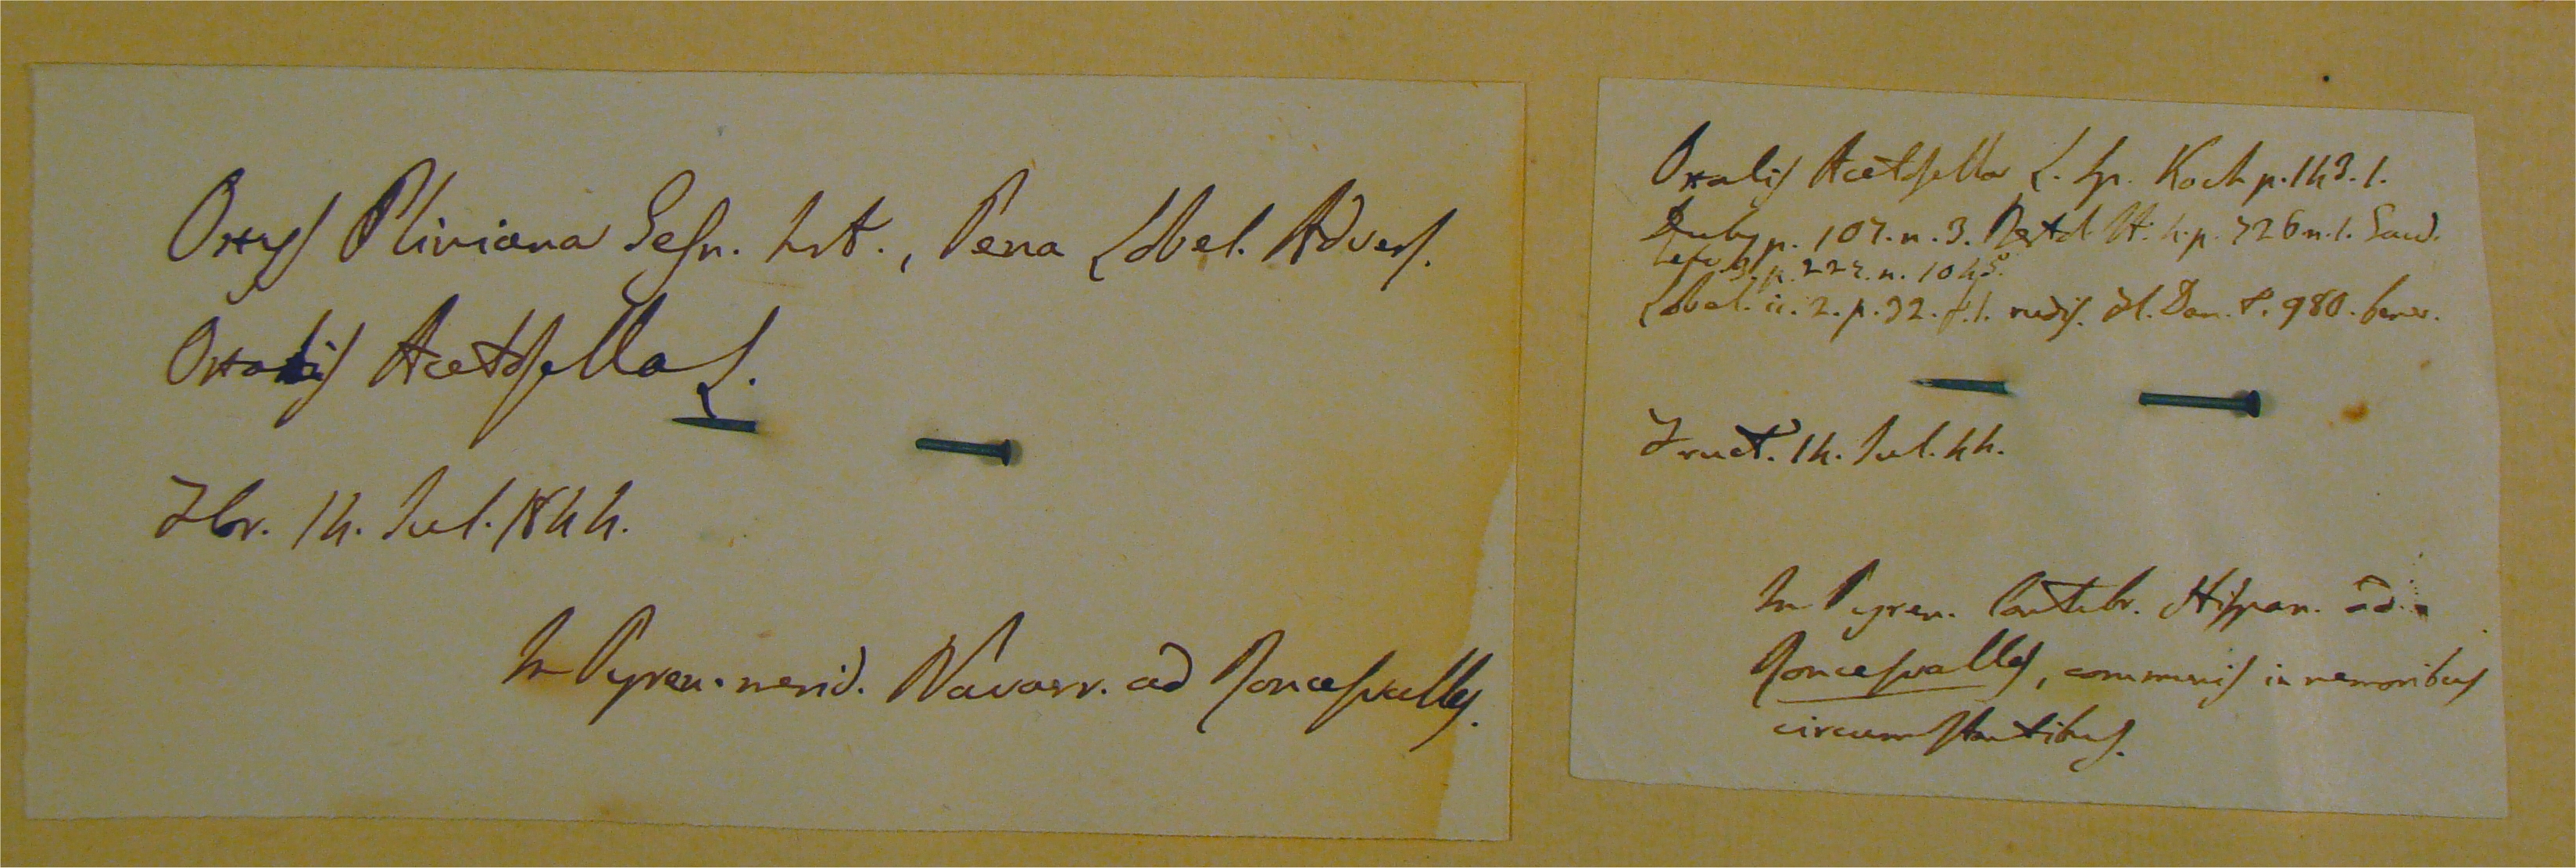 Oxys Pliniana Gesn. hrt., Pena Lobel. Advers.
Oxalis Acetosella L.
Flor. 14. Jul. 1844.
In Pyren. merid. Navarr. ad Roncesvalles.
Oxalis Acetosella L. sp. Koch p. 143. 1.
Duby p. 107. n. 3. It. h. p. 726 n. 1. Gaud.
3. p. 222. n. 1045.
Lobel. ic. 2. p. 32. f. 1. rudis. Fl. Dan. t. 980. bene.
Fruct. 14. Jul. 44.
In Pyren. Cantabr. Hispan. ad
Roncesvalles, communis in nemoribus
circumstantibus.